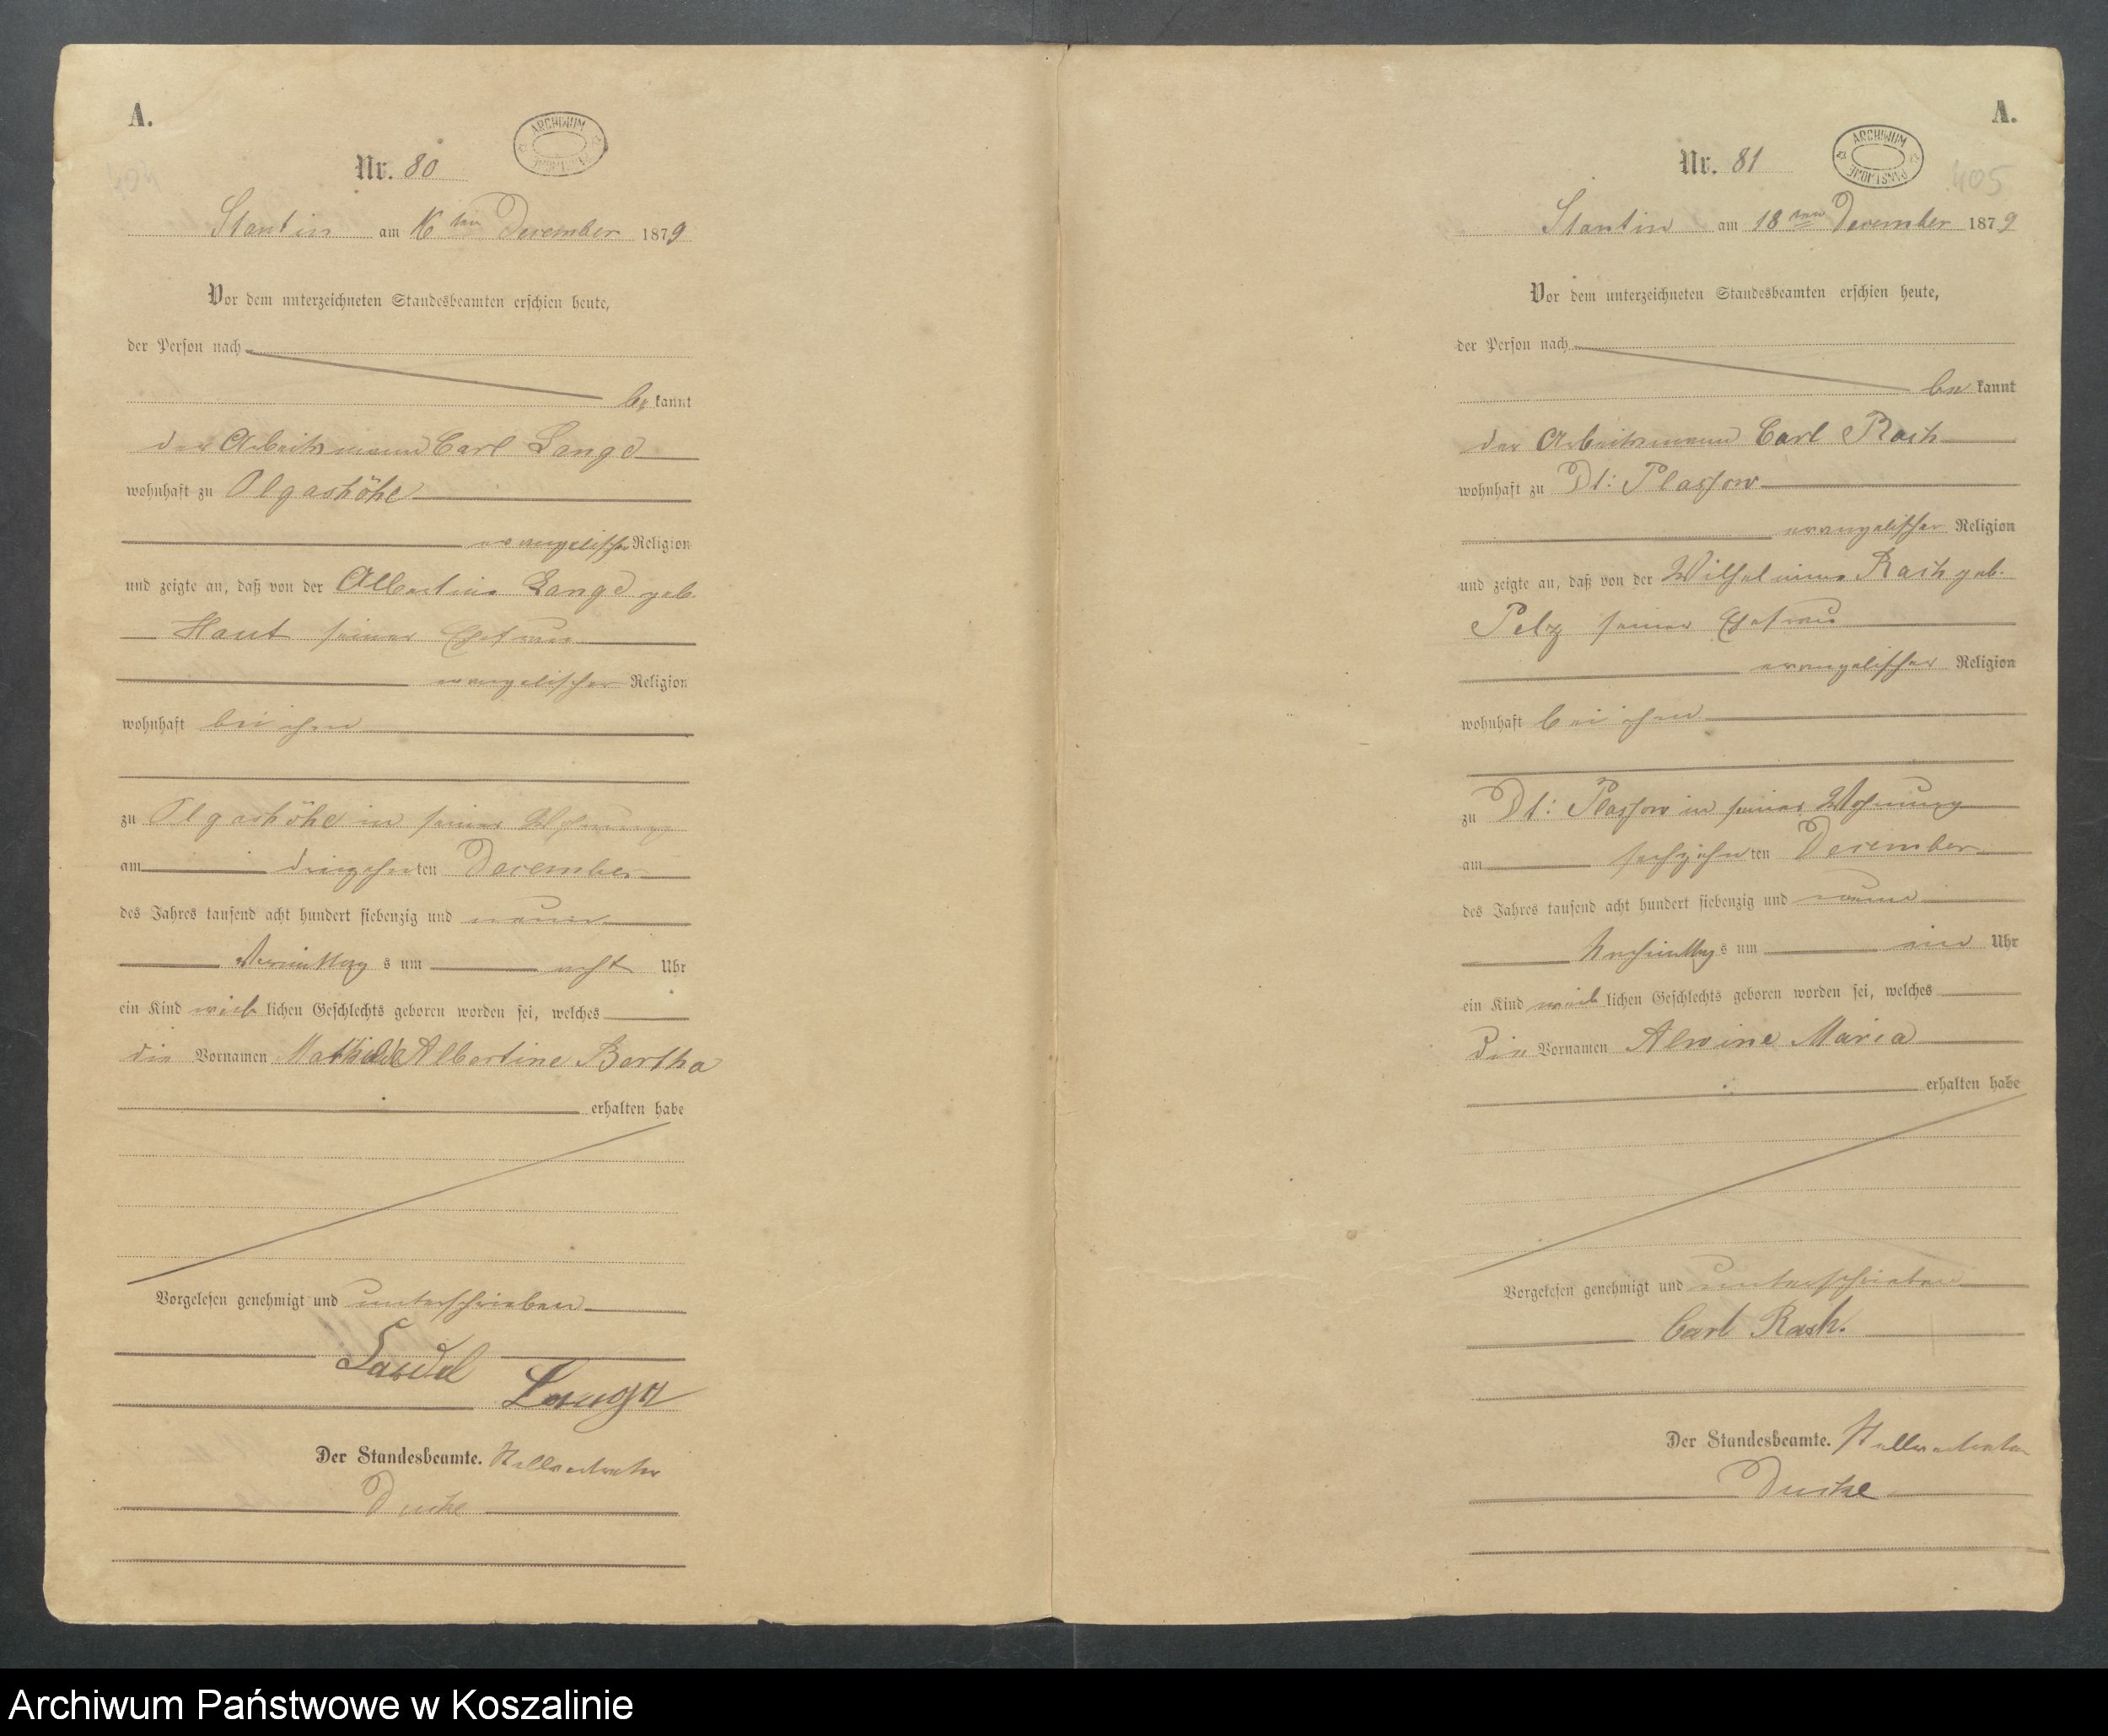 A.
Nr. 80
ARCHIWUM
Stantin am 16 ten December 1879
Vor dem unterzeichneten Standesbeamten erschien heute,
der Person nach
be kannt
der Arbeitsmann Carl Lange
wohnhaft zu Olgashöhe
evangelischer Religion
und zeigte an, daß von der Albertine Lange geb.
Haut seiner Ehefrau
evangelischer Religion
wohnhaft bei ihm
zu Olgashöhe in seiner Wohnung
am dreizehnten December
des Jahres tausend acht hundert siebenzig und neun
Vormittags um acht Uhr
ein Kind weiblichen Geschlechts geboren worden sei, welches
die Vornamen Mathilde Albertine Bertha
erhalten habe
Vorgelesen genehmigt und unterschrieben
Lange
Der Standesbeamte. Stellvertreter
A.
Nr. 81
ARCHIWUM PAŃSTWOWE
405
Stantin am 18 ten December 1879
Vor dem unterzeichneten Standesbeamten erschien heute,
der Person nach
be kannt
der Arbeitsmann Carl Rach
wohnhaft zu Dt: Plassow
evangelischer Religion
und zeigte an, daß von der Wilhelmine Rach geb.
Pelz seiner Ehefrau
evangelischer Religion
wohnhaft bei ihm
zu Dt: Plassow in seiner Wohnung
am sechzehnten December
des Jahres tausend acht hundert siebenzig und neun
Nachmittags um ein Uhr
ein Kind weiblichen Geschlechts geboren worden sei, welches
die Vornamen Alwine Maria
erhalten habe
Vorgelesen genehmigt und unterschrieben
Carl Rach.
Der Standesbeamte. Stellvertreter
Archiwum Państwowe w Koszalinie